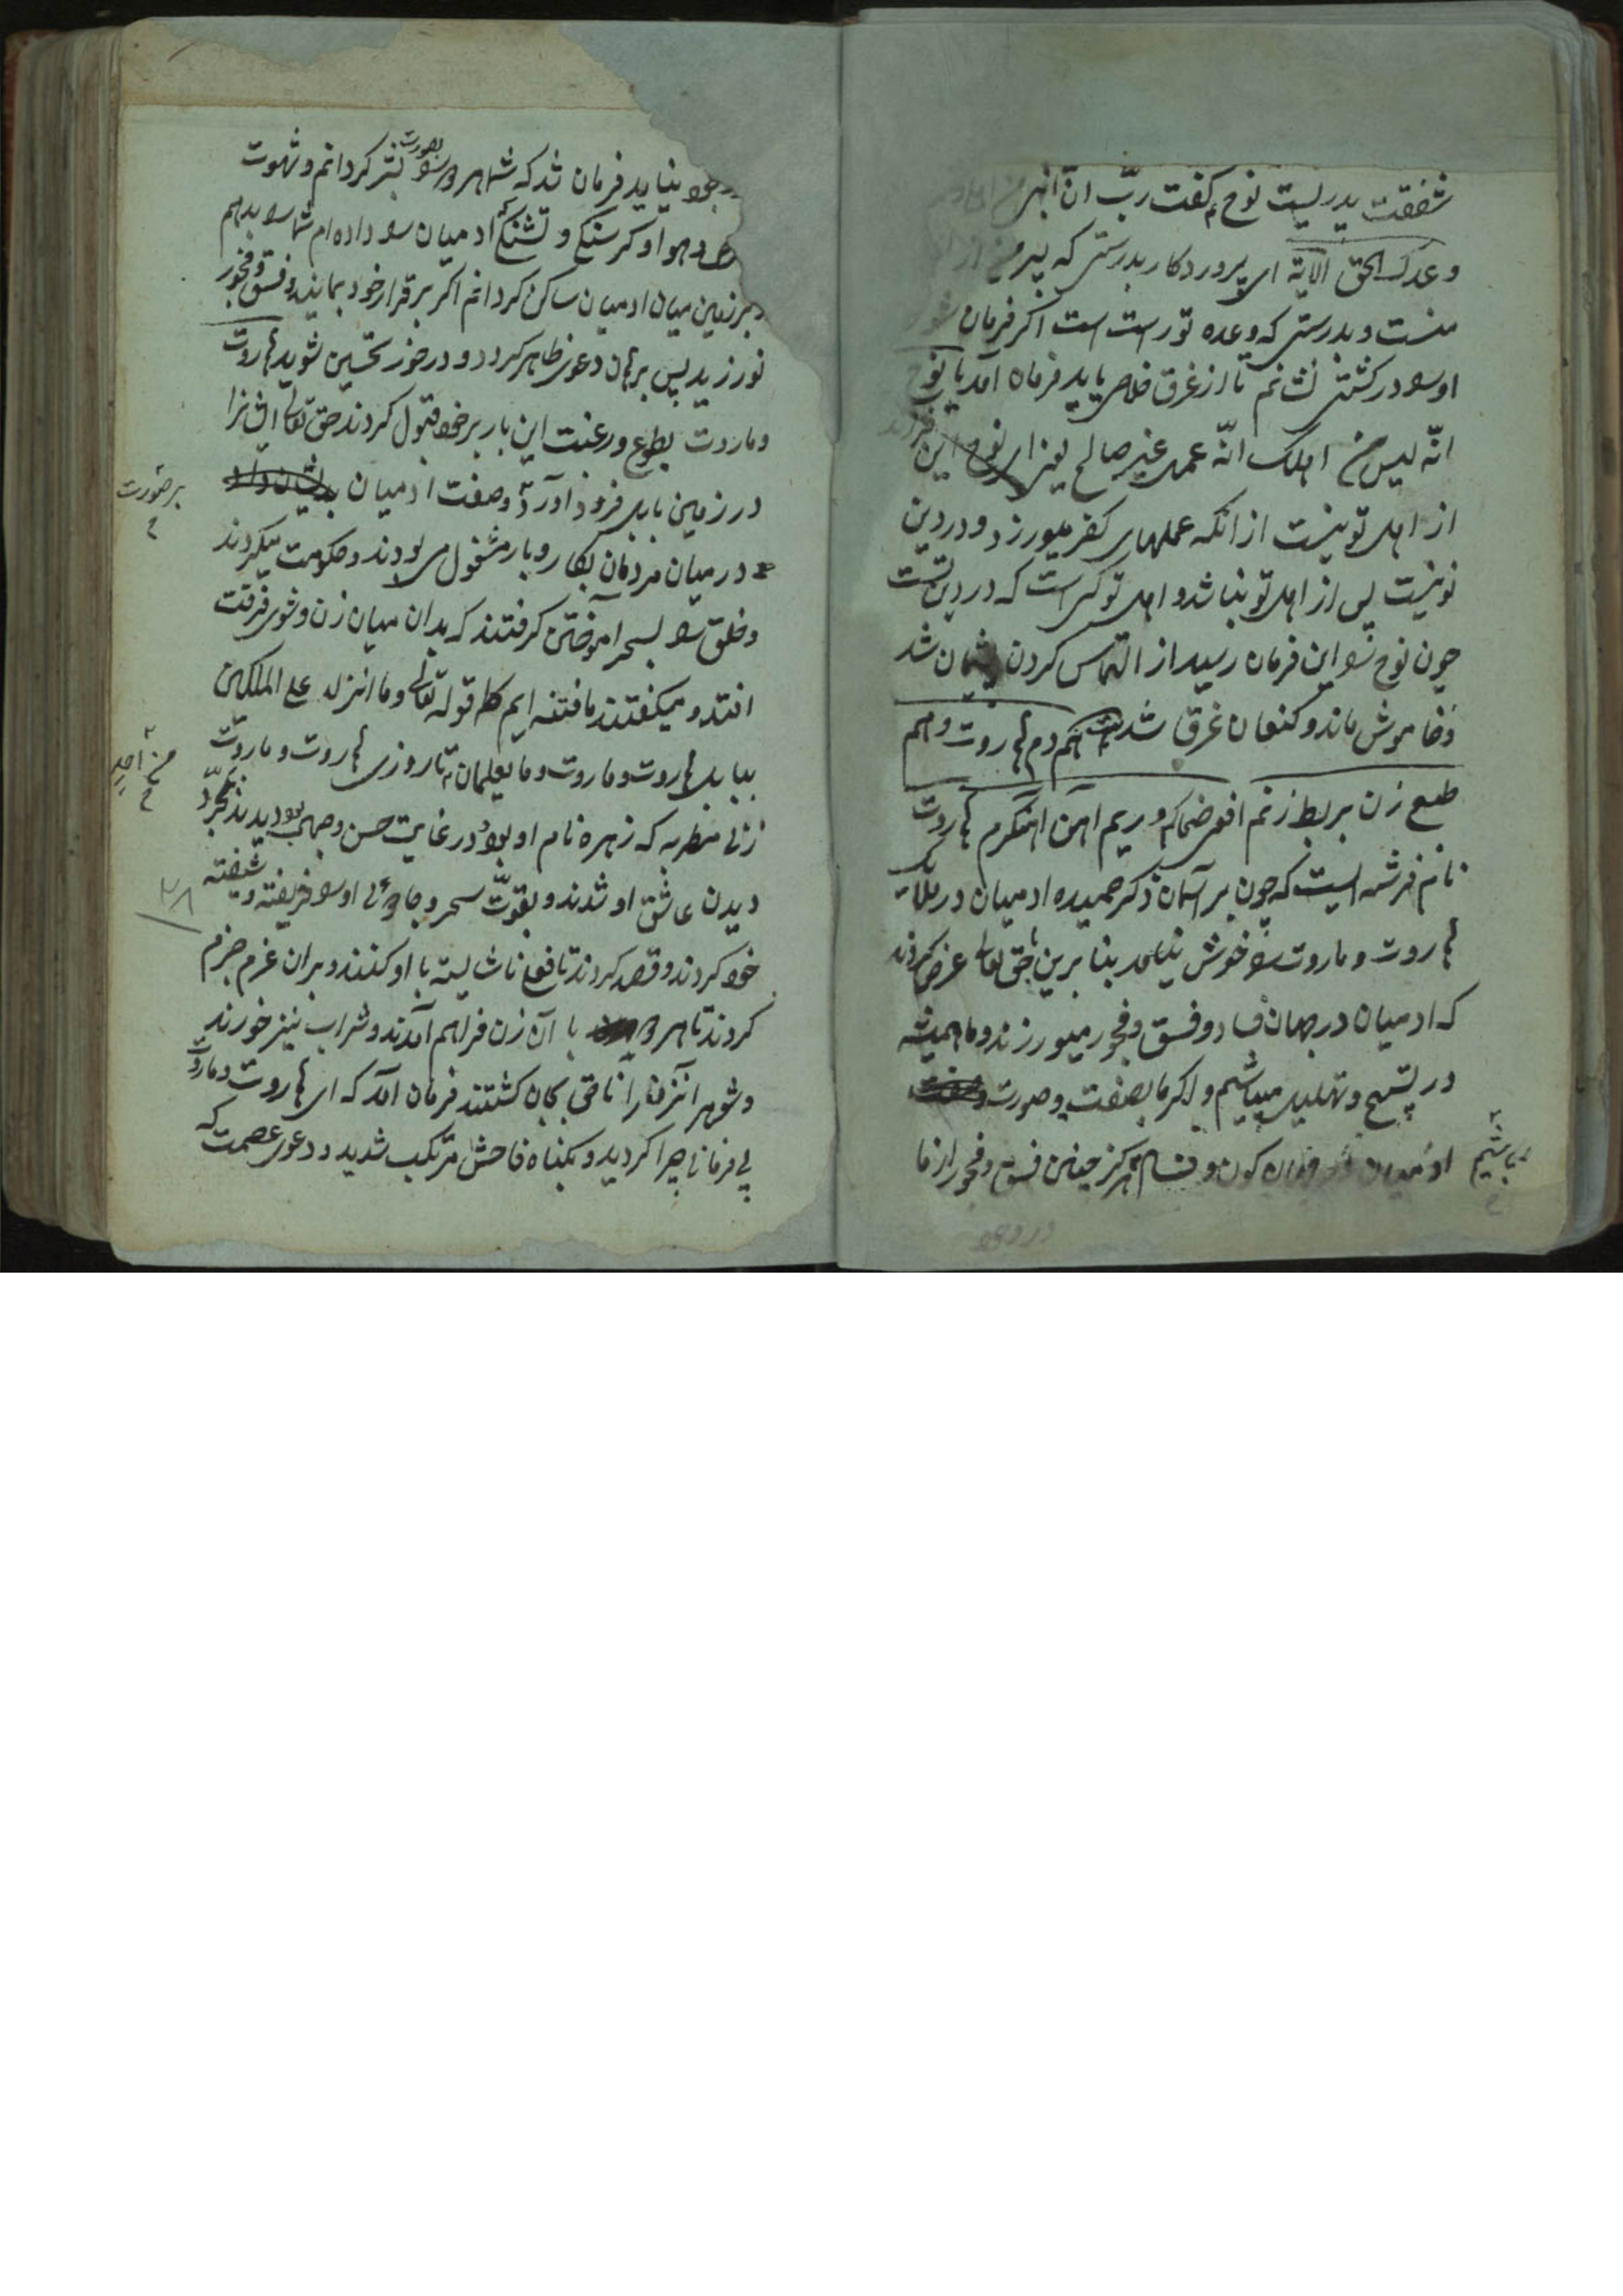 شفقت پدریست نوح م کفت ربّ انّ ابنی من اهلی
وعدک الحق الآیة ای پرورد کار بدرستی که پسر من از
منست و بدرستی که وعده تو راست است اکر فرمان شود
اورا در کشتی نشانم تا از غرق خلاص یابد فرمان آمد یا نوح
انّه لیس من اهلک انّه عمل غیر صالح یعنی ای نوح این فرزند
از اهل تو نیست از انکه عملهای کفر میورزد و در دین
تو نیست پس از اهل تو نباشد و اهل تو کسی است که در دین تست
چون نوح را این فرمان رسید از التماس کردن پشیمان شد
و خاموش ماند و کنعان غرق شد بیت هم دم هاروت و هم
طبع زن بربط زنم افعی ضحاکم و ریم اهن اهنکرم هاروت
نام فرشته ایست که چون بر آسمان ذکر حمیده ادمیان در ملایک
هاروت و ماروت را خوش نیامد بنا برین بحق تعالی عرض کردند
که ادمیان در جهان فساد و فسق و فجور میورزند و ما همیشه
در تسبیح و تهلیل میباشیم و اکر ما بصفت و صورت
ادمیان کون و فساد هرکز چنین فسق و فجور از ما
بباشیم
در وجود
در وجود نیاید فرمان شد که شما هر دو را بصورت بشر کردانم و شهوت
و هوا و کرسنکی و تشنکی ادمیان را داده ام شما را بدهم
و بر زمین میان ادمیان ساکن کردانم اکر بر قرار خود بمانید و فسق و فجور
نورزید پس برهان دعوی ظاهر کردد و در خور تحسین شوید هاروت
و ماروت بطوع و رغبت این بار بر خود قبول کردند حق تعالی ایشانرا
در زمین بابل فرود آورد و صفت ادمیان بدیشان داد
بر صورت
در میان مردمان بکار و بار مشغول می بودند و حکومت میکردند
و خلق را سحر آموختن کرفتند که بدان میان زن و شوی فرقت
افتد و میکفتند ما فتنه ایم کما قوله تعالی وما انزل علی الملکین
ببابل هاروت وماروت وما یعلمان تا روزی هاروت و ماروت
من احد
زنی مطربه که زهره نام او بود در غایت حسن و جمال بود بدیدند بمجرد
دیدن عاشق او شدند و بقوّت سحر و جادوئی اورا فریفته و شیفته
خود کردند و قصد کردند تا فعل ناشایسته با او کنند و بران عزم جزم
کردند تا هر دو با آن زن فراهم آمدند و شراب نیز خوردند
و شوهر انزن را ناحق بجان کشتند فرمان آمد که ای هاروت و ماروت
بی فرمانی چرا کردید و بکناه فاحش مرتکب شدید و دعوی عصمت که